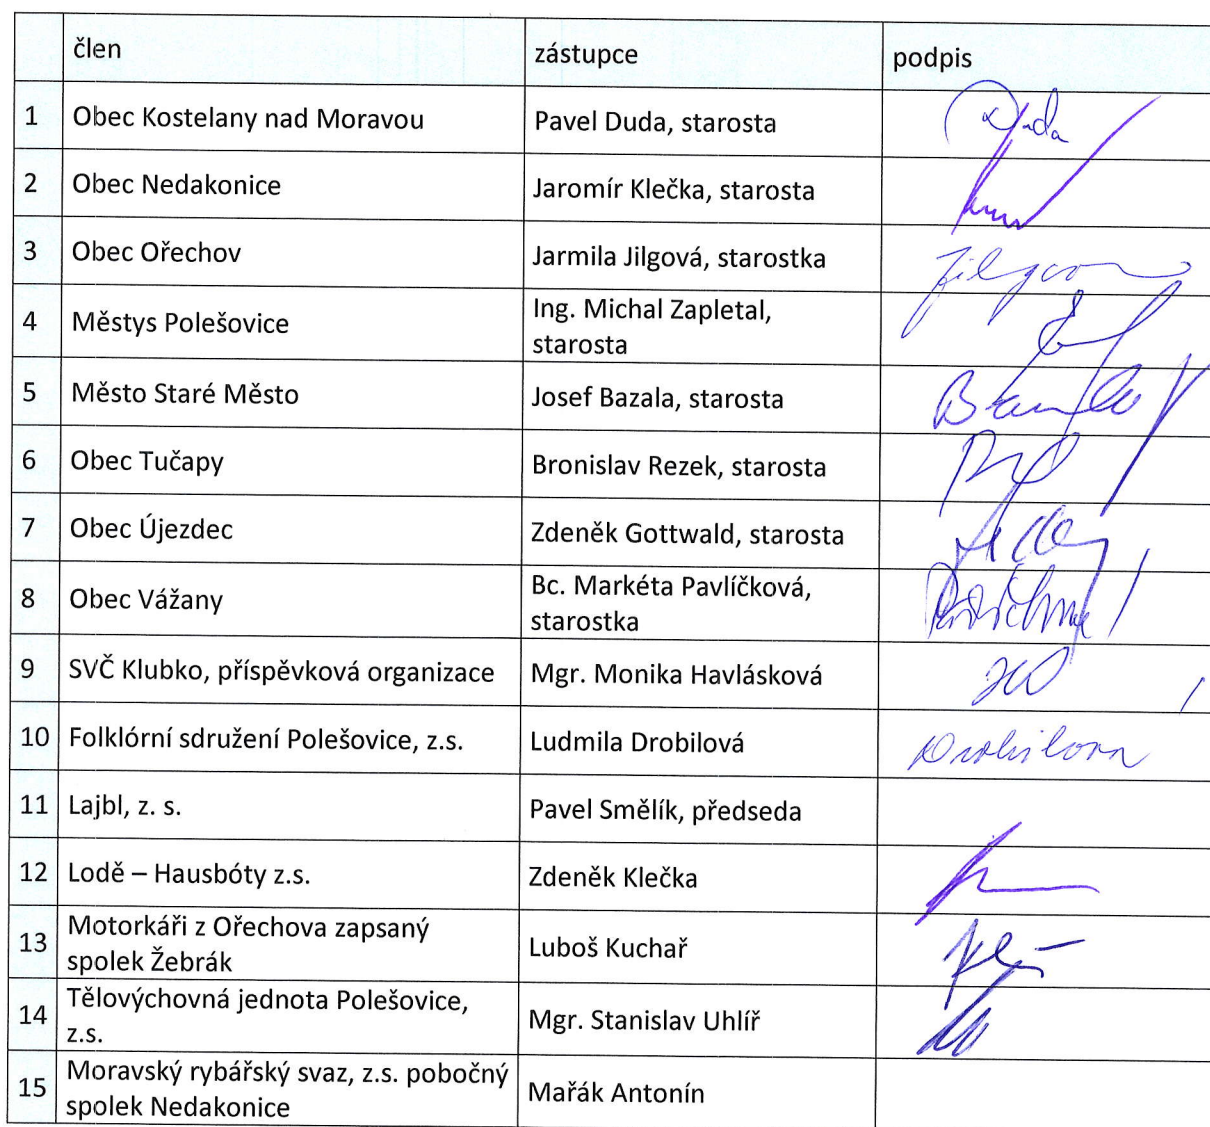 člen zástupce podpis
1 Obec Kostelany nad Moravou Pavel Duda, starosta Duda
2 Obec Nedakonice Jaromír Klečka, starosta
3 Obec Ořechov Jarmila Jilgová, starostka Jilgová
4 Městys Polešovice Ing. Michal Zapletal,
starosta
5 Město Staré Město Josef Bazala, starosta
6 Obec Tučapy Bronislav Rezek, starosta
7 Obec Újezdec Zdeněk Gottwald, starosta
8 Obec Vážany Bc. Markéta Pavlíčková,
starostka
9 SVČ Klubko, příspěvková organizace Mgr. Monika Havlásková
10 Folklórní sdružení Polešovice, z.s. Ludmila Drobilová Drobilova
11 Lajbl, z. s. Pavel Smělík, předseda
12 Lodě – Hausbóty z.s. Zdeněk Klečka
13 Motorkáři z Ořechova zapsaný
spolek Žebrák Luboš Kuchař
14 Tělovýchovná jednota Polešovice,
z.s. Mgr. Stanislav Uhlíř
15 Moravský rybářský svaz, z.s. pobočný
spolek Nedakonice Mařák Antonín